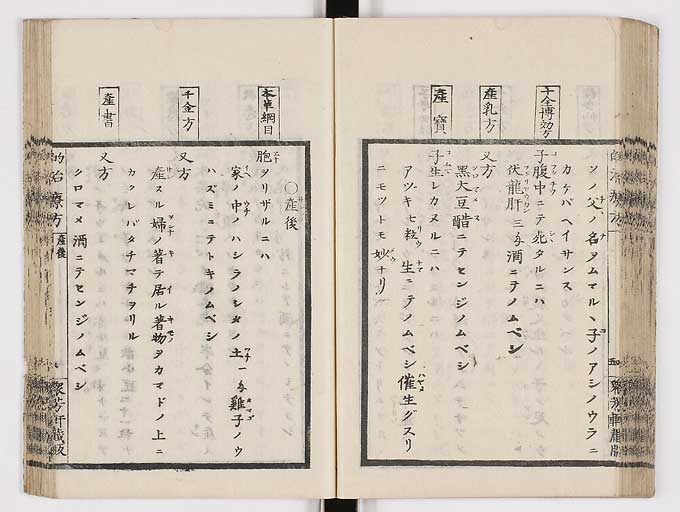 ソノ父ノ名ヲムマルヽ子ノアシノウラニ
カケバヘイサンス
十全博効方
子腹中ニテ死タルニハ
伏龍肝三匁酒ニテノムベシ
産乳方
又方
黒大豆醋ニテセンジノムベシ
産寳
子生レカヌルニハ
アヅキ七粒生ニテノムベシ催生グスリ
ニモツトモ妙ナリ
〇産後
本草綱目
胞ヲリザルニハ
家ノ中ノハシラノシタノ土一匁雞子ノウ
ハズミニテトキノムベシ
千金方
又方
産スル婦ノ著テ居ル著物ヲカマドノ上ニ
カクレバタチマチヲリル
産書
又方
クロマメ酒ニテセンジノムベシ
的治療方
産後
衆芳軒蔵版